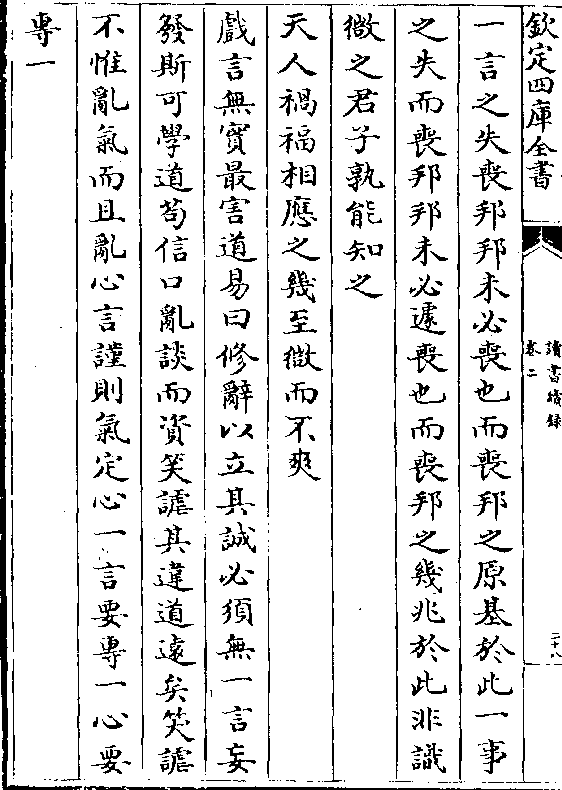 欽定四庫全書
讀書續錄
卷二
二十八
一言之失喪邦邦未必喪也而喪邦之原基於此一事
之失而喪邦邦未必遽喪也而喪邦之幾兆於此非識
微之君子孰能知之
天人禍福相應之幾至微而不爽
戲言無實最害道易曰修辭以立其誠必須無一言妄
發斯可學道苟信口亂談而資笑謔其違道遠矣笑謔
不惟亂氣而且亂心言謹則氣定心一言要專一心要
專一